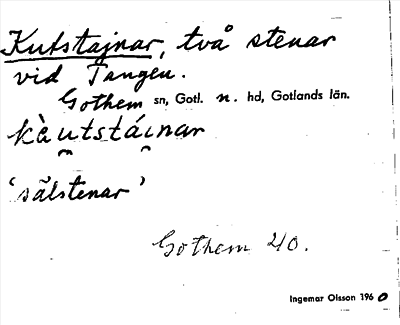 Kutstajnar, två stenar
vid Tangen.
Gothem sn, Gotl. n. hd, Gotlands län.
kàu̯tstái̯nar
'sälstenar'
Gothem 40.
Ingemar Olsson 1960